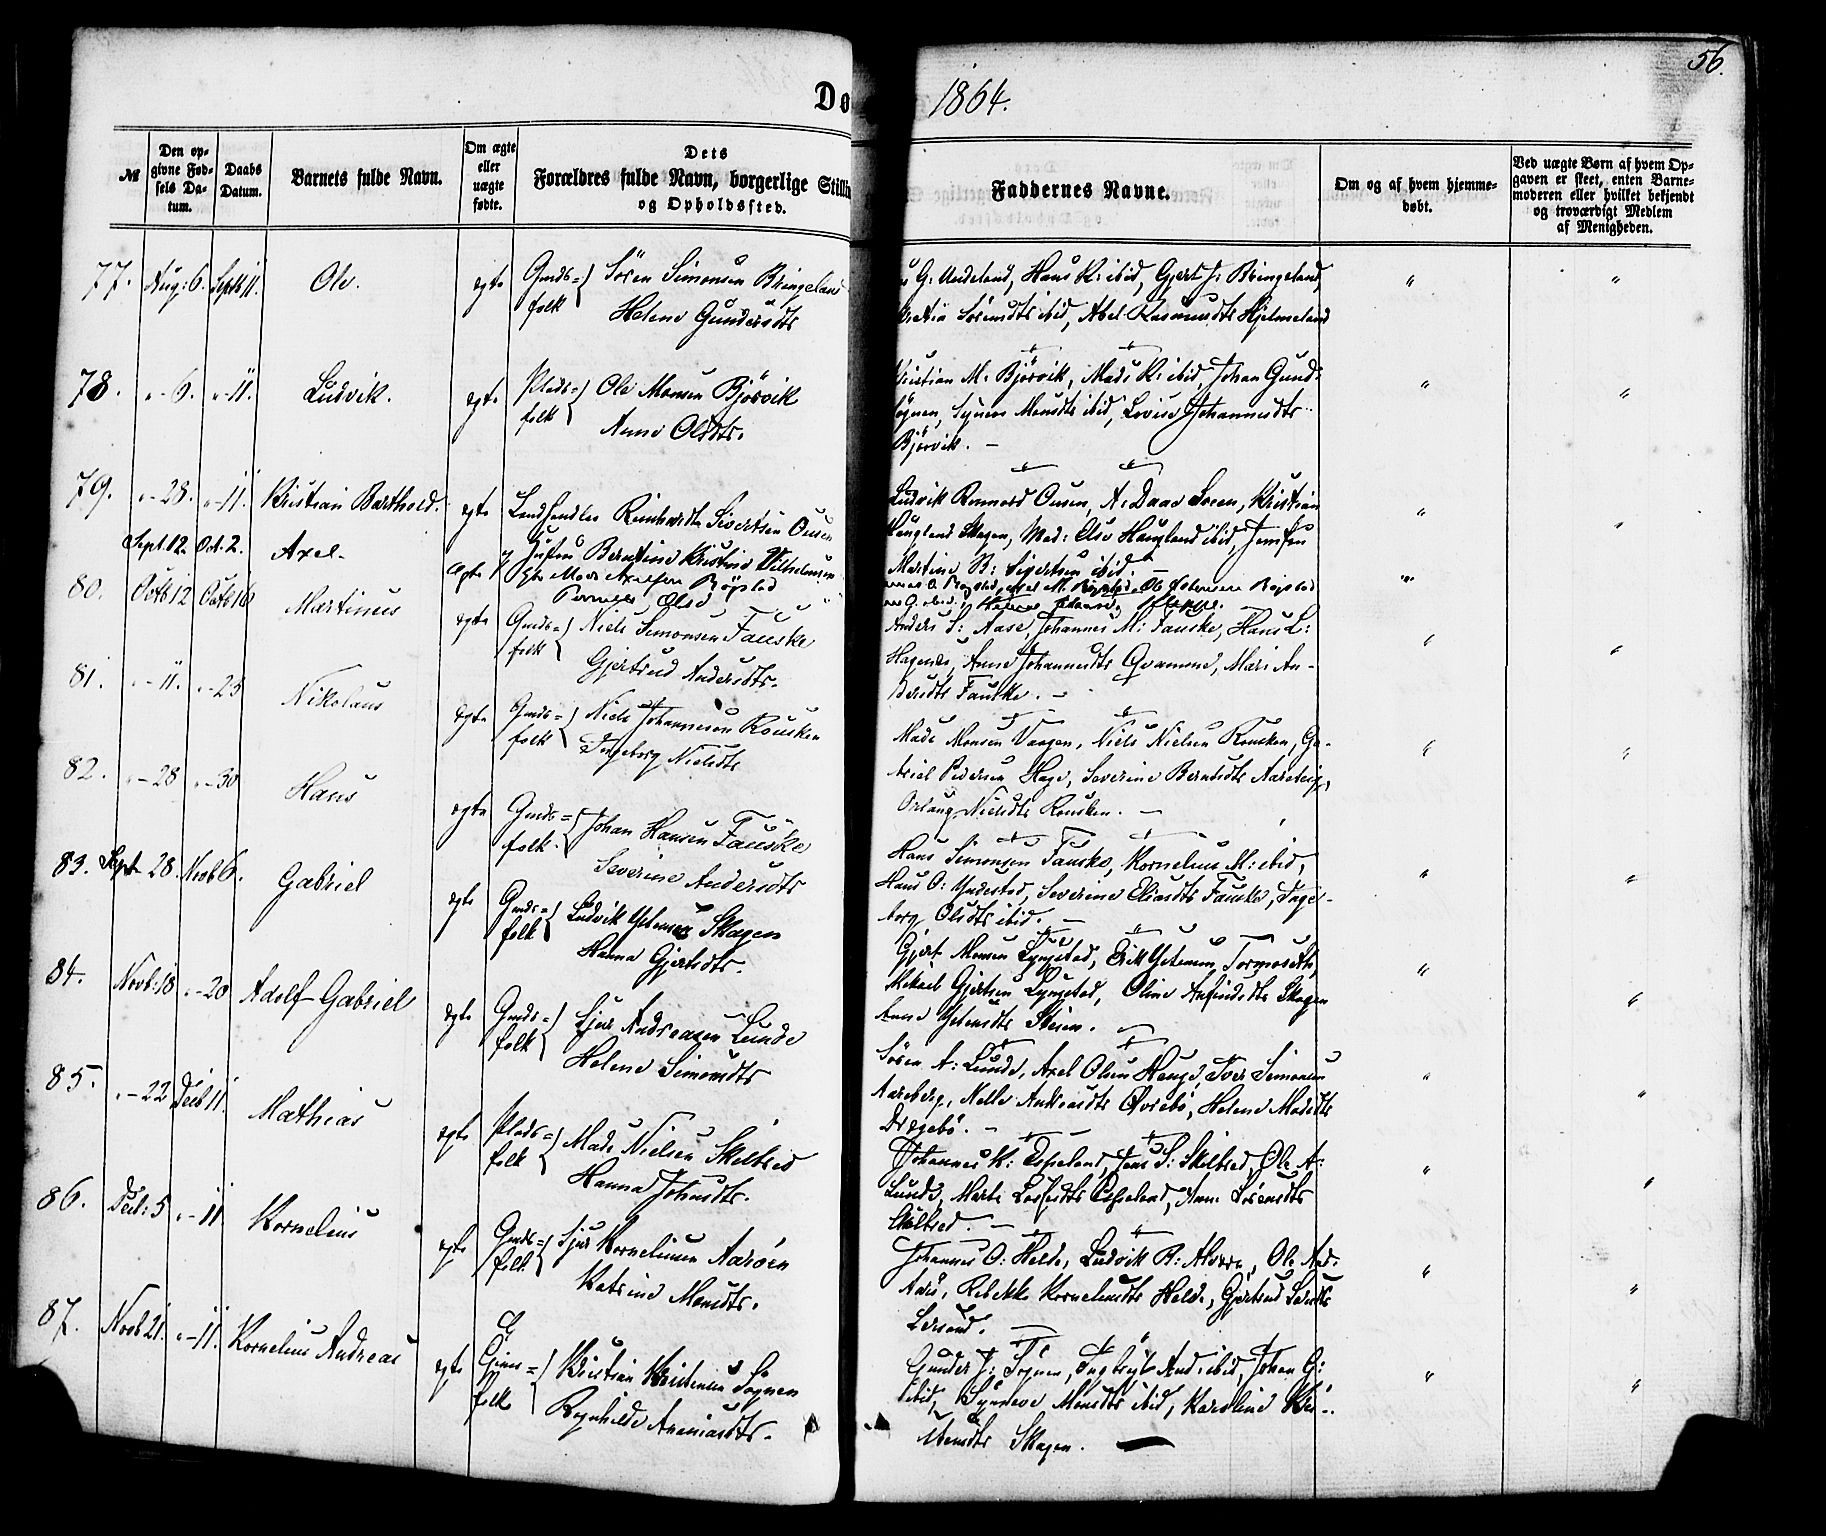 56.
Dø
1864.
№
Den opgivne Fødsels Datum.
Daabs Datum.
Barnets fulde Navn.
Om ægte eller uægte fødte.
Dets Forældres fulde Navn, borgerlige Stilli og Opholdssted.
Faddernes Navne.
Om og af hvem hjemmedøbt.
Ved uægte Børn af hvem Opgaven er skeet, enten Barnemoderen eller hvilket bekjendt og troværdigt Medlem af Menigheden.
77. Aug: 6. Septb 11. Ole. egte Gmds= folk Sören Simonsen Bringeland
Helene Gundersdts
G: Undeland, Hans K: ibid, Gjert J: Bringeland,
Sörensdts ibid, Abel Rasmusdts Hjelmeland
78. " - 6. " - 11. Ludvik. egte Plads= folk Ole Monsen Björvik
Anne Olsdts.
Kristian M: Björvik, Mads K: ibid, Johan Gund:
Sögnen, Synneve Monsdts ibid, Lovise Johannesdts
Björvik. —
79. " - 28. " - 11. Kristian Barthold. egte Landhandler Reinhardt Sivertsen Ousen
Jufru Berntine Kristine Vilhelmsen
Ludvik Ousen, A: Daae Soren, Kristian
Haugland Skagen, Mad: Elso Haugland ibid, Jomfru
Martine B: Sivertsen ibid. —
Sept. 12. Oct. 2. Axel. Ægte Mads Axelsen Röpstad
Olsd
80. Octb 12 Octb 16 Martinus egte Gmds= folk Niels Simonsen Fauske
Gjertrud Andersdts.
Anders S: Aase, Johannes M: Fauske, Hans L:
Hagenes, Anne Johannesdts Qvamme, Mari An-
dersdts Fauske. —
81. " - 11. " - 23 Nikolaus egte Gmds= folk Niels Johannesen Rousken
Ingeborg Nielsdts
Mads Monsen Vaagen, Niels Nielsen Rousken, Ga-
briel Pedersen Hage, Severine Berntsdts Aareberg,
Orlaug Nielsdts Rousken. —
82. " - 28 " - 30 Hans egte Gmds= folk. Johan Hansen Fauske
Severine Andersdts
Hans Simonsen Fauske, Kornelius M: ibid,
Hans O: Yndestad, Severine Eliasdts Fauske, Inge-
borg Olsdts ibid. —
83. Sept - 28. Novb 6. Gabriel egte Gmds= folk Ludvik Skagen
Hanna Gjertsdts.
Gjert Monsen Lyngstad, Erik Tormoseth,
Mikael Gjertsen Lyngstad, Oline Anfindsdts Skagen
Anne Steien. —
84. Novb: 18 " - 20 Adolf Gabriel egte Gmds= folk Sjur Andreasen Lunde
Helene Simonsdts
Sören A: Lunde, Axel Olsen Hauge, Iver Simonsen
Aareberg, Nelle Andreasdts Övrebö, Helene Madsdts
Drægebö. —
85. " - 22 Decb 11. Mathias egte Plads= folk Mads Nielsen Skilbred
Hanna Johnsdts.
Johannes K: Espeland, Jens S: Skilbred, Ole A:
Lunde, Marte Espeland, Anne Sörensdts
Skilbred. —
86. Decb: 5 " - 11 Kornelius egte Gmds= folk Sjur Kornelius­en Aaröen
Katrine Monsdts.
Johannes O: Helde, Ludvik R: Alværn, Ole And:
Rebekka Kornelius­dts Helde, Gjertrud
87. Novb 21. " - 11. Kornelius Andreas egte folk Kristian Kristensen Sögnen
Ragnhilde Ananiasdts.
Gunder J: Sögnen, Ingebrigt And: ibid, Johan G:
ibid, Synneve Monsdts ibid, Karoline
Monsdts Skagen. —